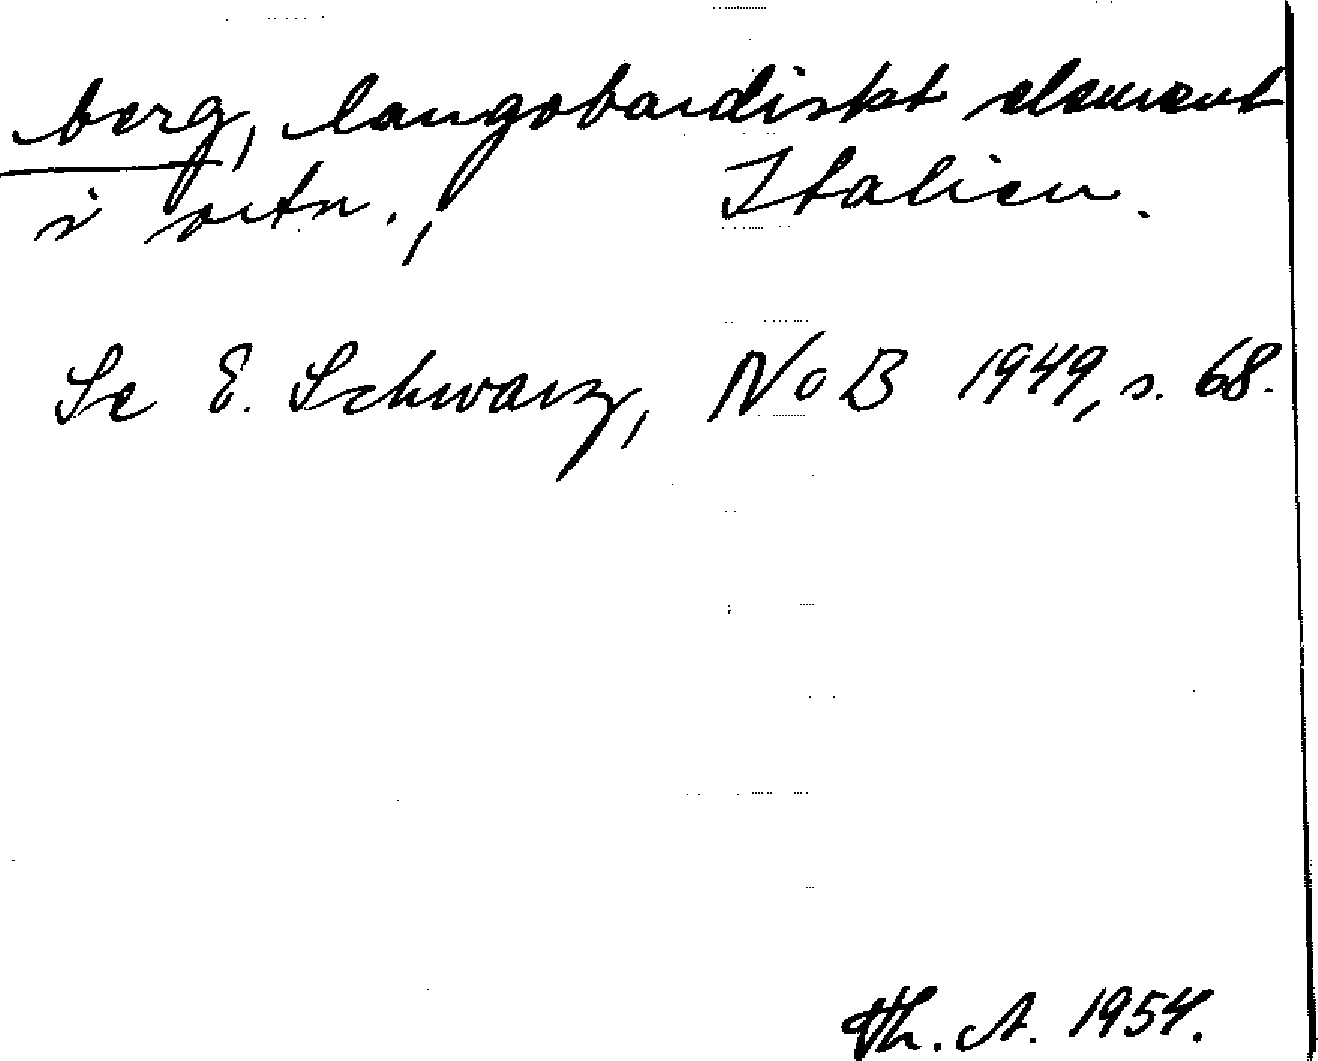 berg, langobardiskt element
i ortn., Italien.
Se E. Schwarz, NoB 1949, s. 68.
Th. A. 1954.